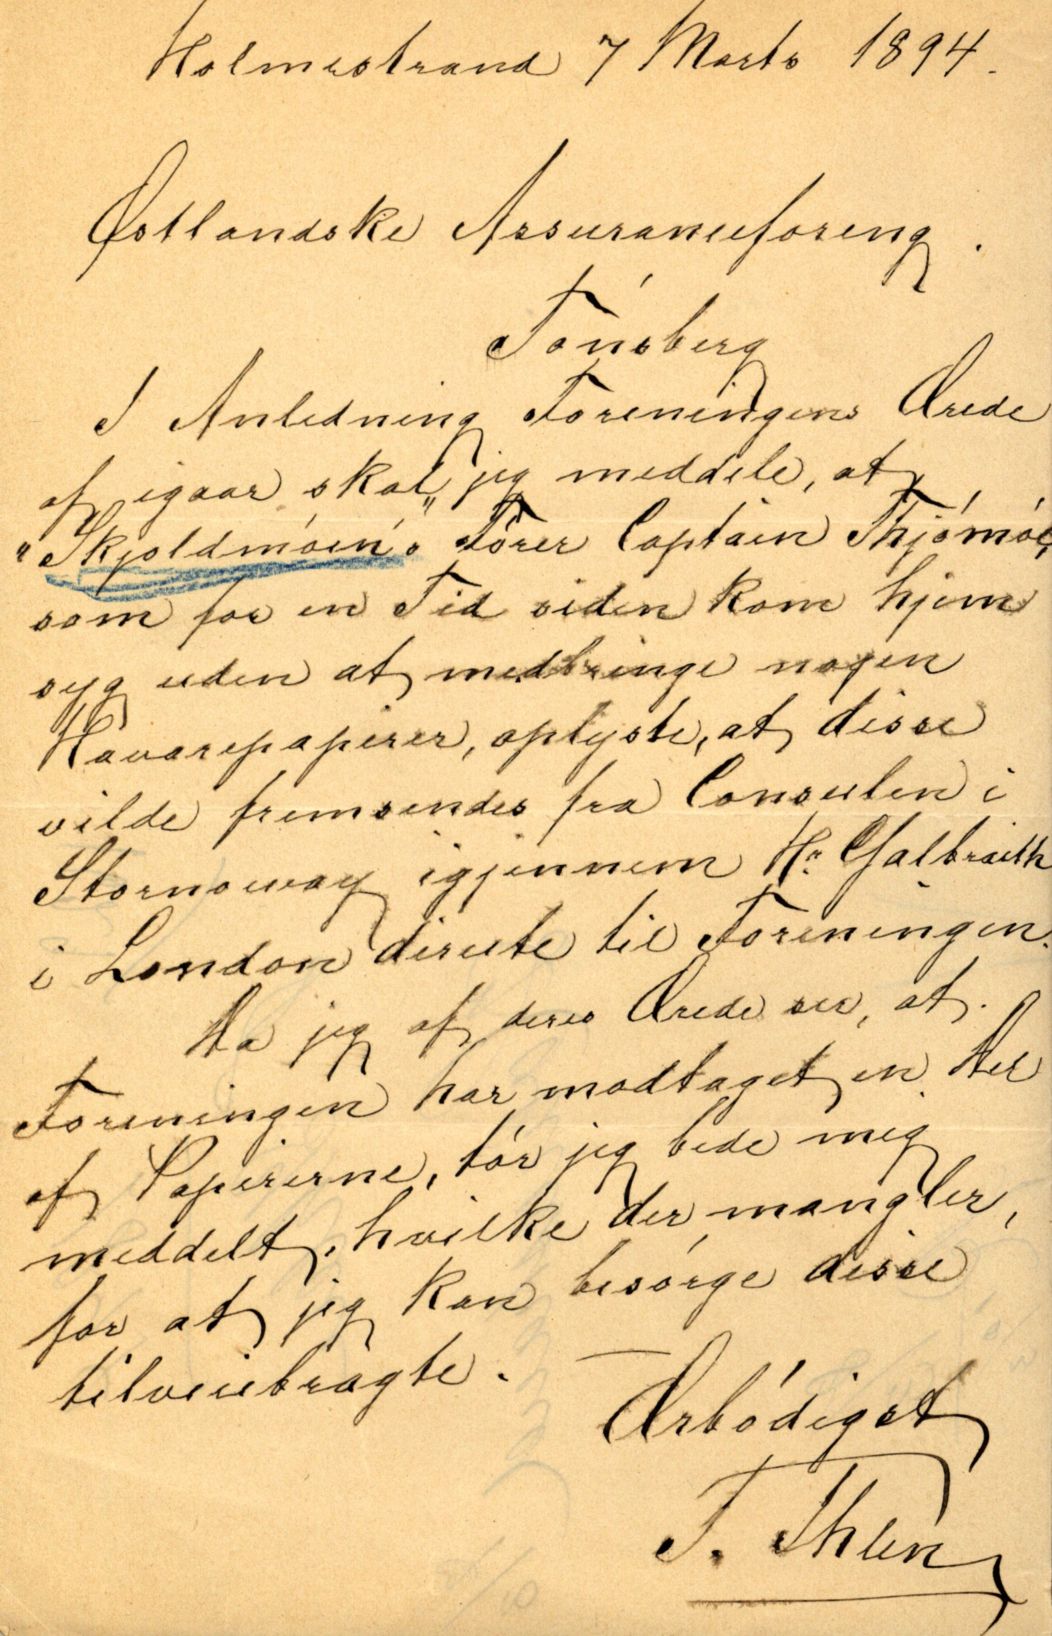 Holmestrand 7 Marts 1894.
Østlandske Assuranceforeng.
Tónsberg
I Anledning Foreningens Ærede
af igaar skal jeg meddele, at
"Skjoldmóen"s Fórer Captain Thjómóe,
som for en Tid siden kom hjem
syg uden at medbringe nogen
Havarepapirer, oplyste, at disse
vilde fremsendes fra Consulen i
Stornoway igjennem Hr. Galbraith
i London directe til Foreningen.
Da jeg af deres Ærede ser, at
Foreningen har modtaget en Del
af Papirerne, tór jeg bede mig
meddelt, hvilke der mangler,
for at jeg kan besórge disse
tilveiebragte.
Ærbódigst